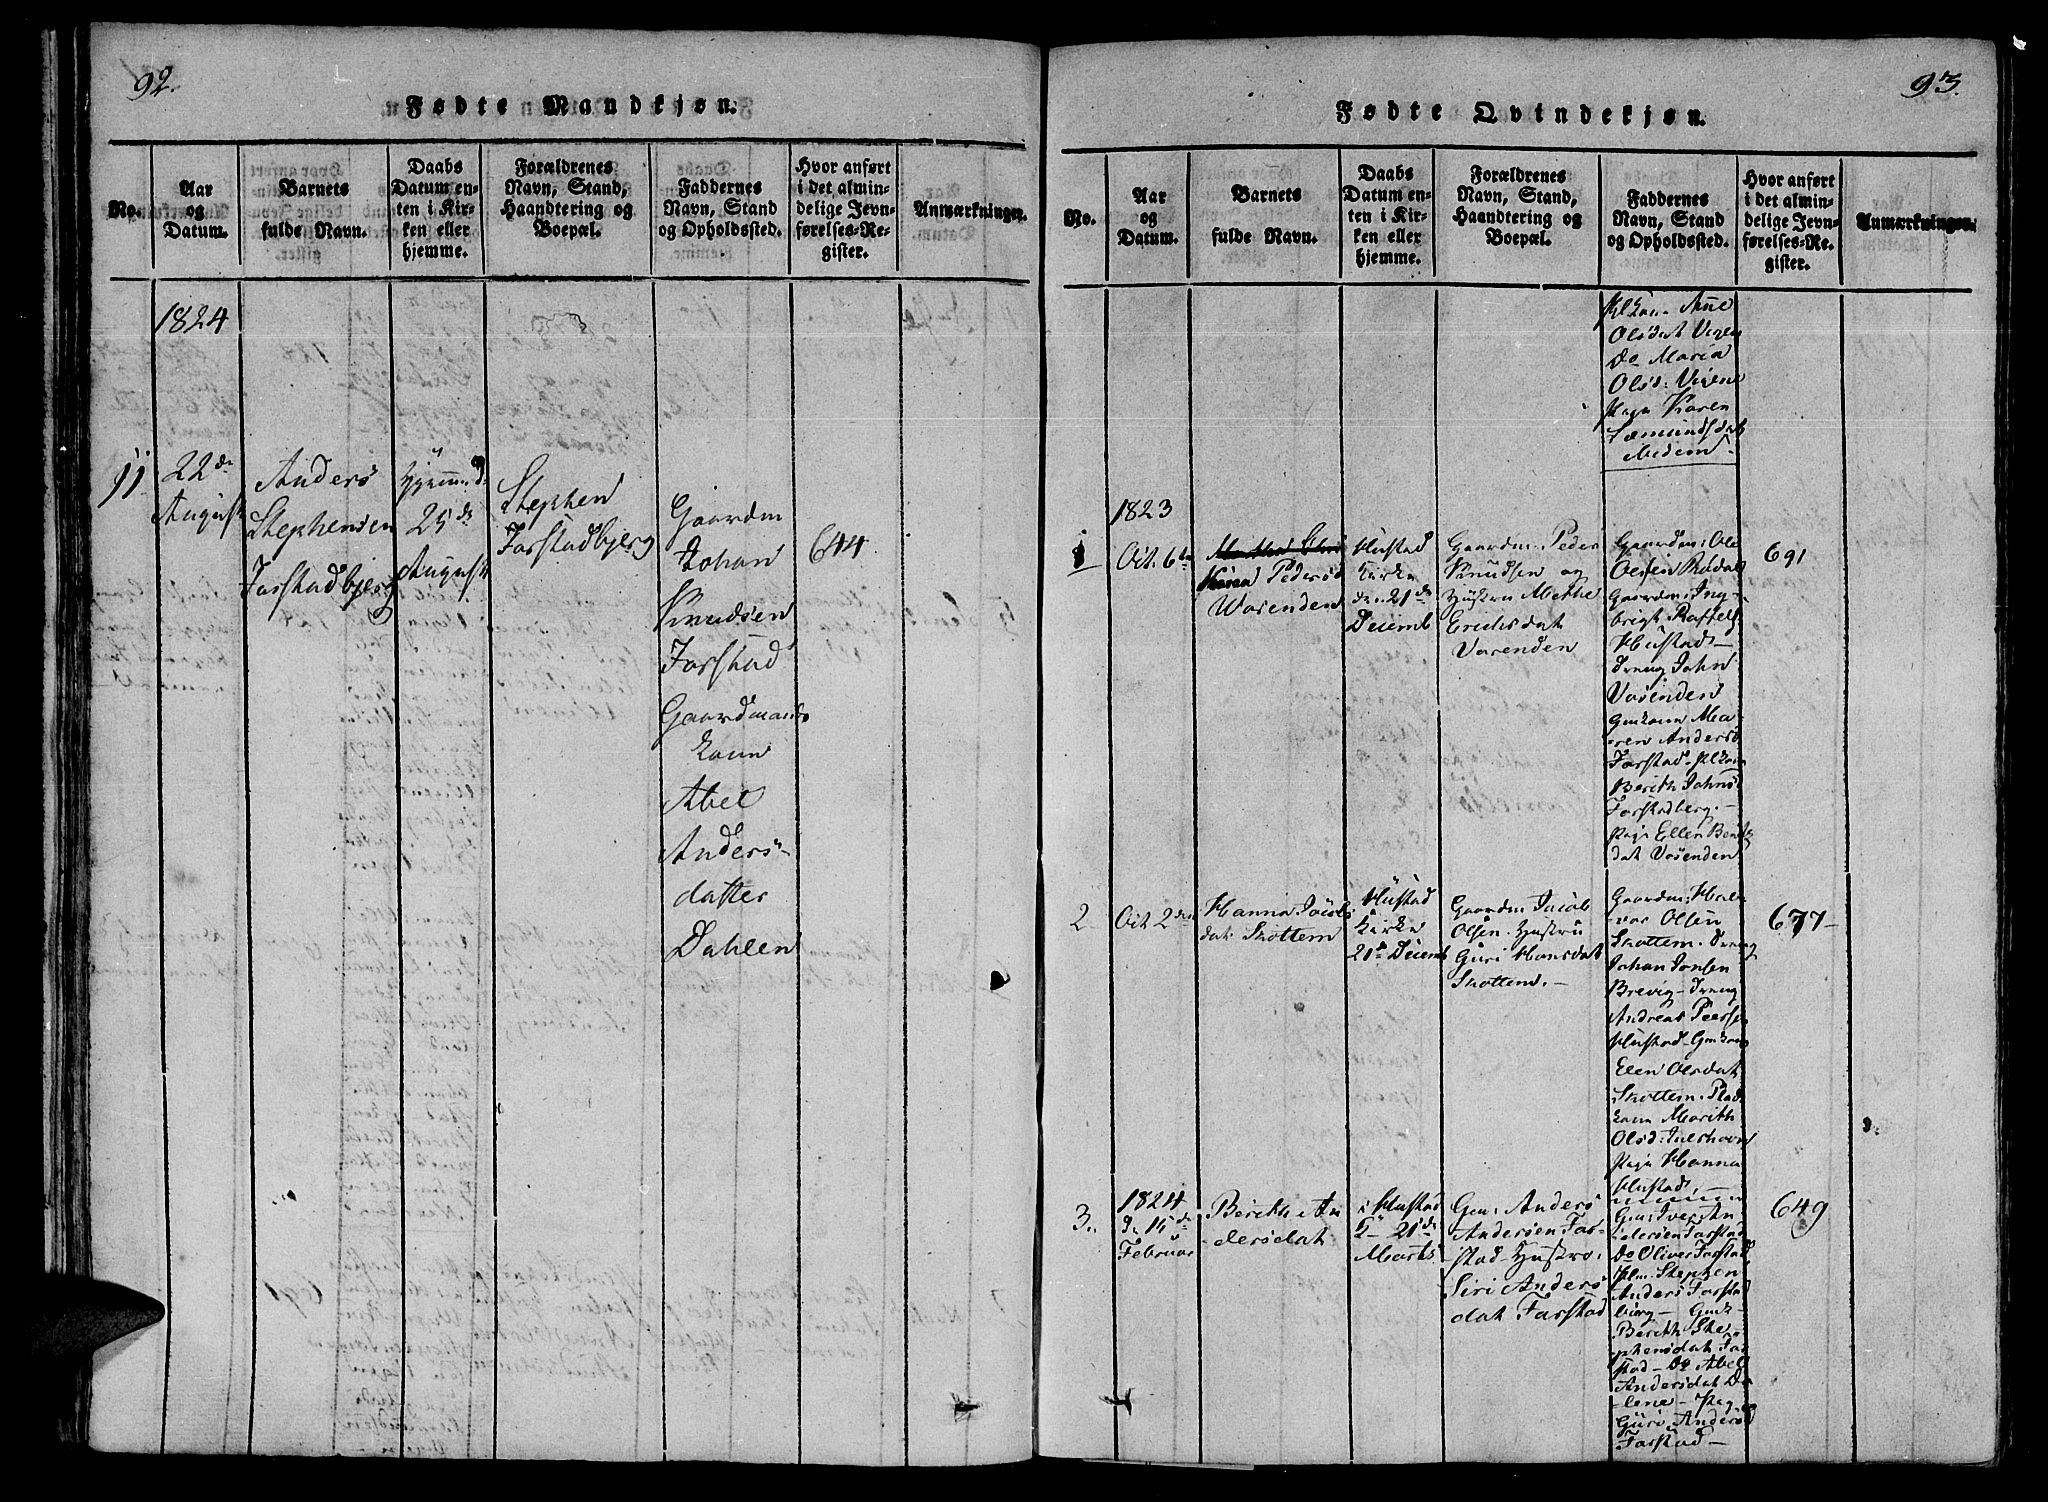 92.
Fødte Mandkjøn.
No.
Aar
og
Datum.
Barnets
fulde Navn.
Daabs
Datum en-
ten i Kir-
ken eller
hjemme.
Forældrenes
Navn, Stand,
Haandtering og
Boepæl.
Faddernes
Navn, Stand
og Opholdssted.
Hvor anført
i det almin-
delige Jevn-
førelses-Re-
gister.
Anmærkninger.
1824
11
22de
August
Anders
Stephensen
Farstadbjerg
25de
August
Stephen
Farstadbjerg
Gaardm
Johan
Knudsen
Farstad
Gaardmands
kone
Abel
Anders-
datter
Dahlen
644
93.
Fødte Qvindekjøn.
No.
Aar
og
Datum.
Barnets
fulde Navn.
Daabs
Datum en-
ten i Kir-
ken eller
hjemme.
Forældrenes
Navn, Stand,
Haandtering og
Boepæl.
Faddernes
Navn, Stand
og Opholdssted.
Hvor anført
i det almin-
delige Jevn-
førelses-Re-
gister.
Anmærkninger.
Anne
Olsdat Vigen
Do Maria
Olsd: Vigen
Pige Karen
Semundsdat
1823
1
Oct. 6te
Pedersd
Vasenden
Hustad
Kirke
den 21de
Decemb
Gaardm: Peder
Knudsen og
Hustru Methe
Erichsdat
Vasenden
Gaardm: Ole
Olsen
Gaardm: Ing-
brigt
Hustad –
Dreng John
Vasenden
Gmkone Ma-
ren Andersd
Farstad. Plkone
Berith Johnsd
Farstadberg. –
Pige Ellen
dat Vasenden
691
2
Oct 2den
Hanna Jacobs
dat Skottem
Hustad
Kirke
21de Decemb
Gaardm Jacob
Olsen. Hustru
Guri Hansdat
Skottem. –
Gaardm: Hal-
vor Olsen
Skottem. Dreng
Johan Jonsen
Brevig – Dreng
Andreas Peerss.
Hustad – Gmkone
Ellen Olsdat
Skottem.
kone Marith
Olsd: Julshavn
Pige Hanna
Hustad.
677
3.
1824
d. 15de
Februar
Berithe An
dersdat
i Hustad
K 21de
Marts
Gm: Anders
Andersen Far-
stad Hustro.
Siri Anders
dat Farstad
Gm: Iver An
dersen Farstad
Do Oliver Farstad
Plm: Stephen
Anders: Farstad
bierg – Gmk-
Berith Ste-
phensdat Far
stad – Do Abel
Andersdat Da
lene – Pige
Guri Anders
Farstad –
649